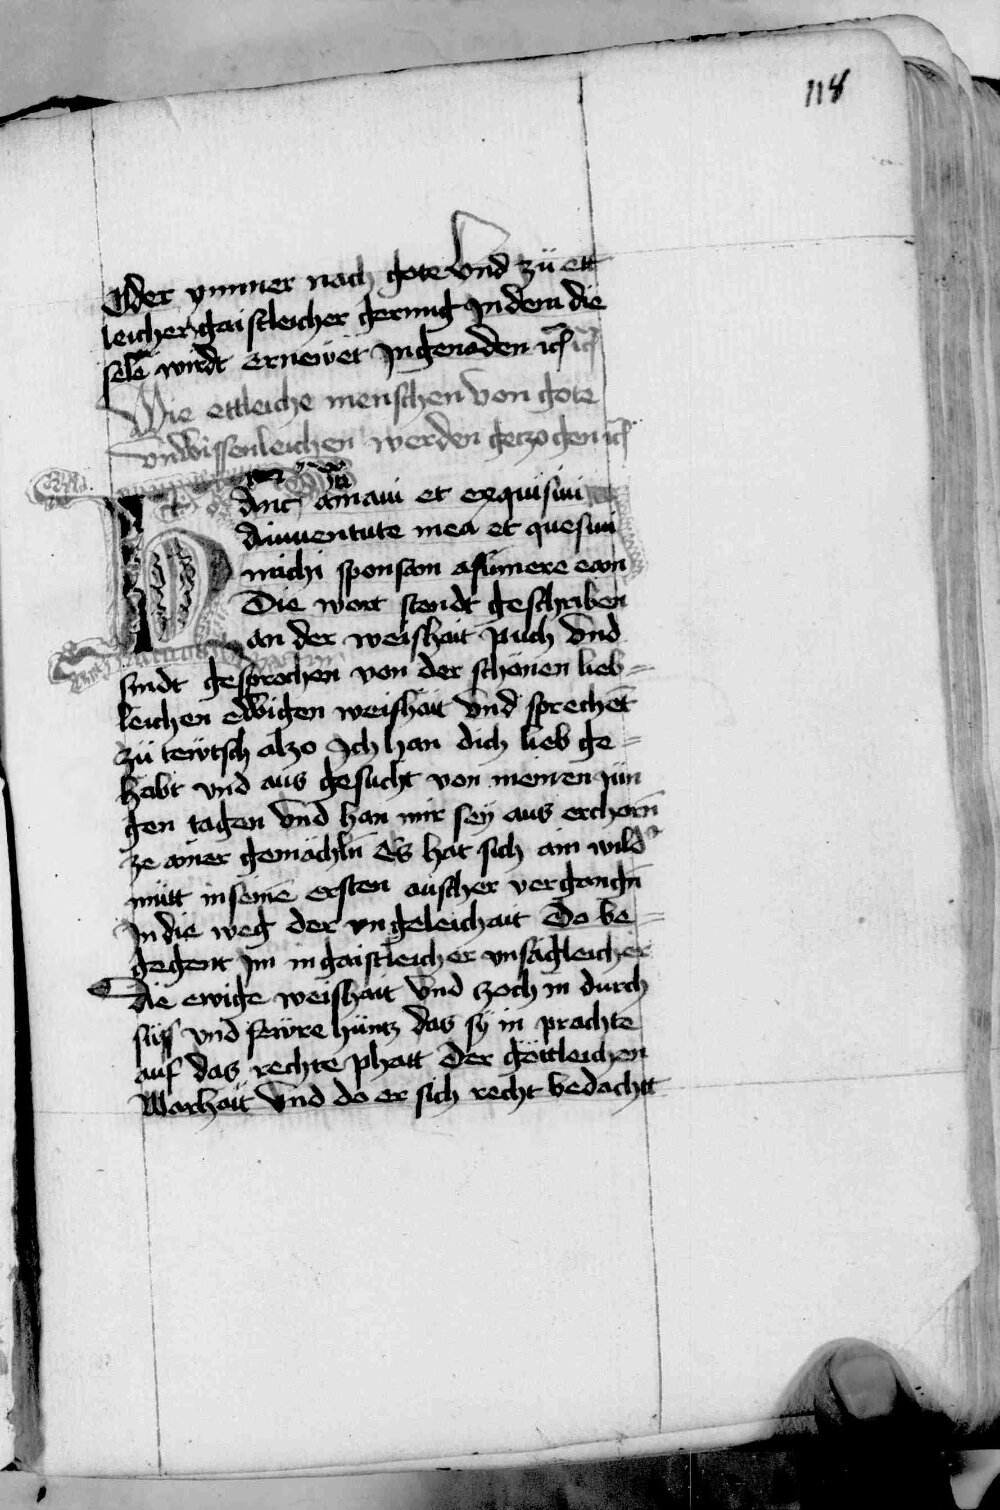 118
Oder ymmer nach gote vnd zü ett
leicher gaistleicher gerung In dem die
sele wirdt ernewet In genaden ich
Wie ettleiche menschen von gote
vnwissenleichen werden getzogen ich
Hanc amaui et exquisiui
a iuuentute mea et quesiui
michi sponsam assumere eam
Die wort stendt geschriben
an der weishait puch vnd
sindt gesprochen von der schönen lieb=
leichen ewigen weishait vnd sprechent
zü tewtsch alzo Ich han dich lieb ge=
habt vnd aus gesucht von meinen jün
gen tagen vnd han mir sey aus erchorn
ze ainer gemächln Es hat sich ain wild
mütt in seine ersten auscher vergangn
In die weg der vngeleichait Do be=
gegent im in gaistleicher vnsägleicher
Die ewige weishait vnd zoch in durch
süss vnd sewre hüntz das sy in prachte
auf das rechte phatt Der göttleichen
Warhait vnd do er sich recht bedachtt